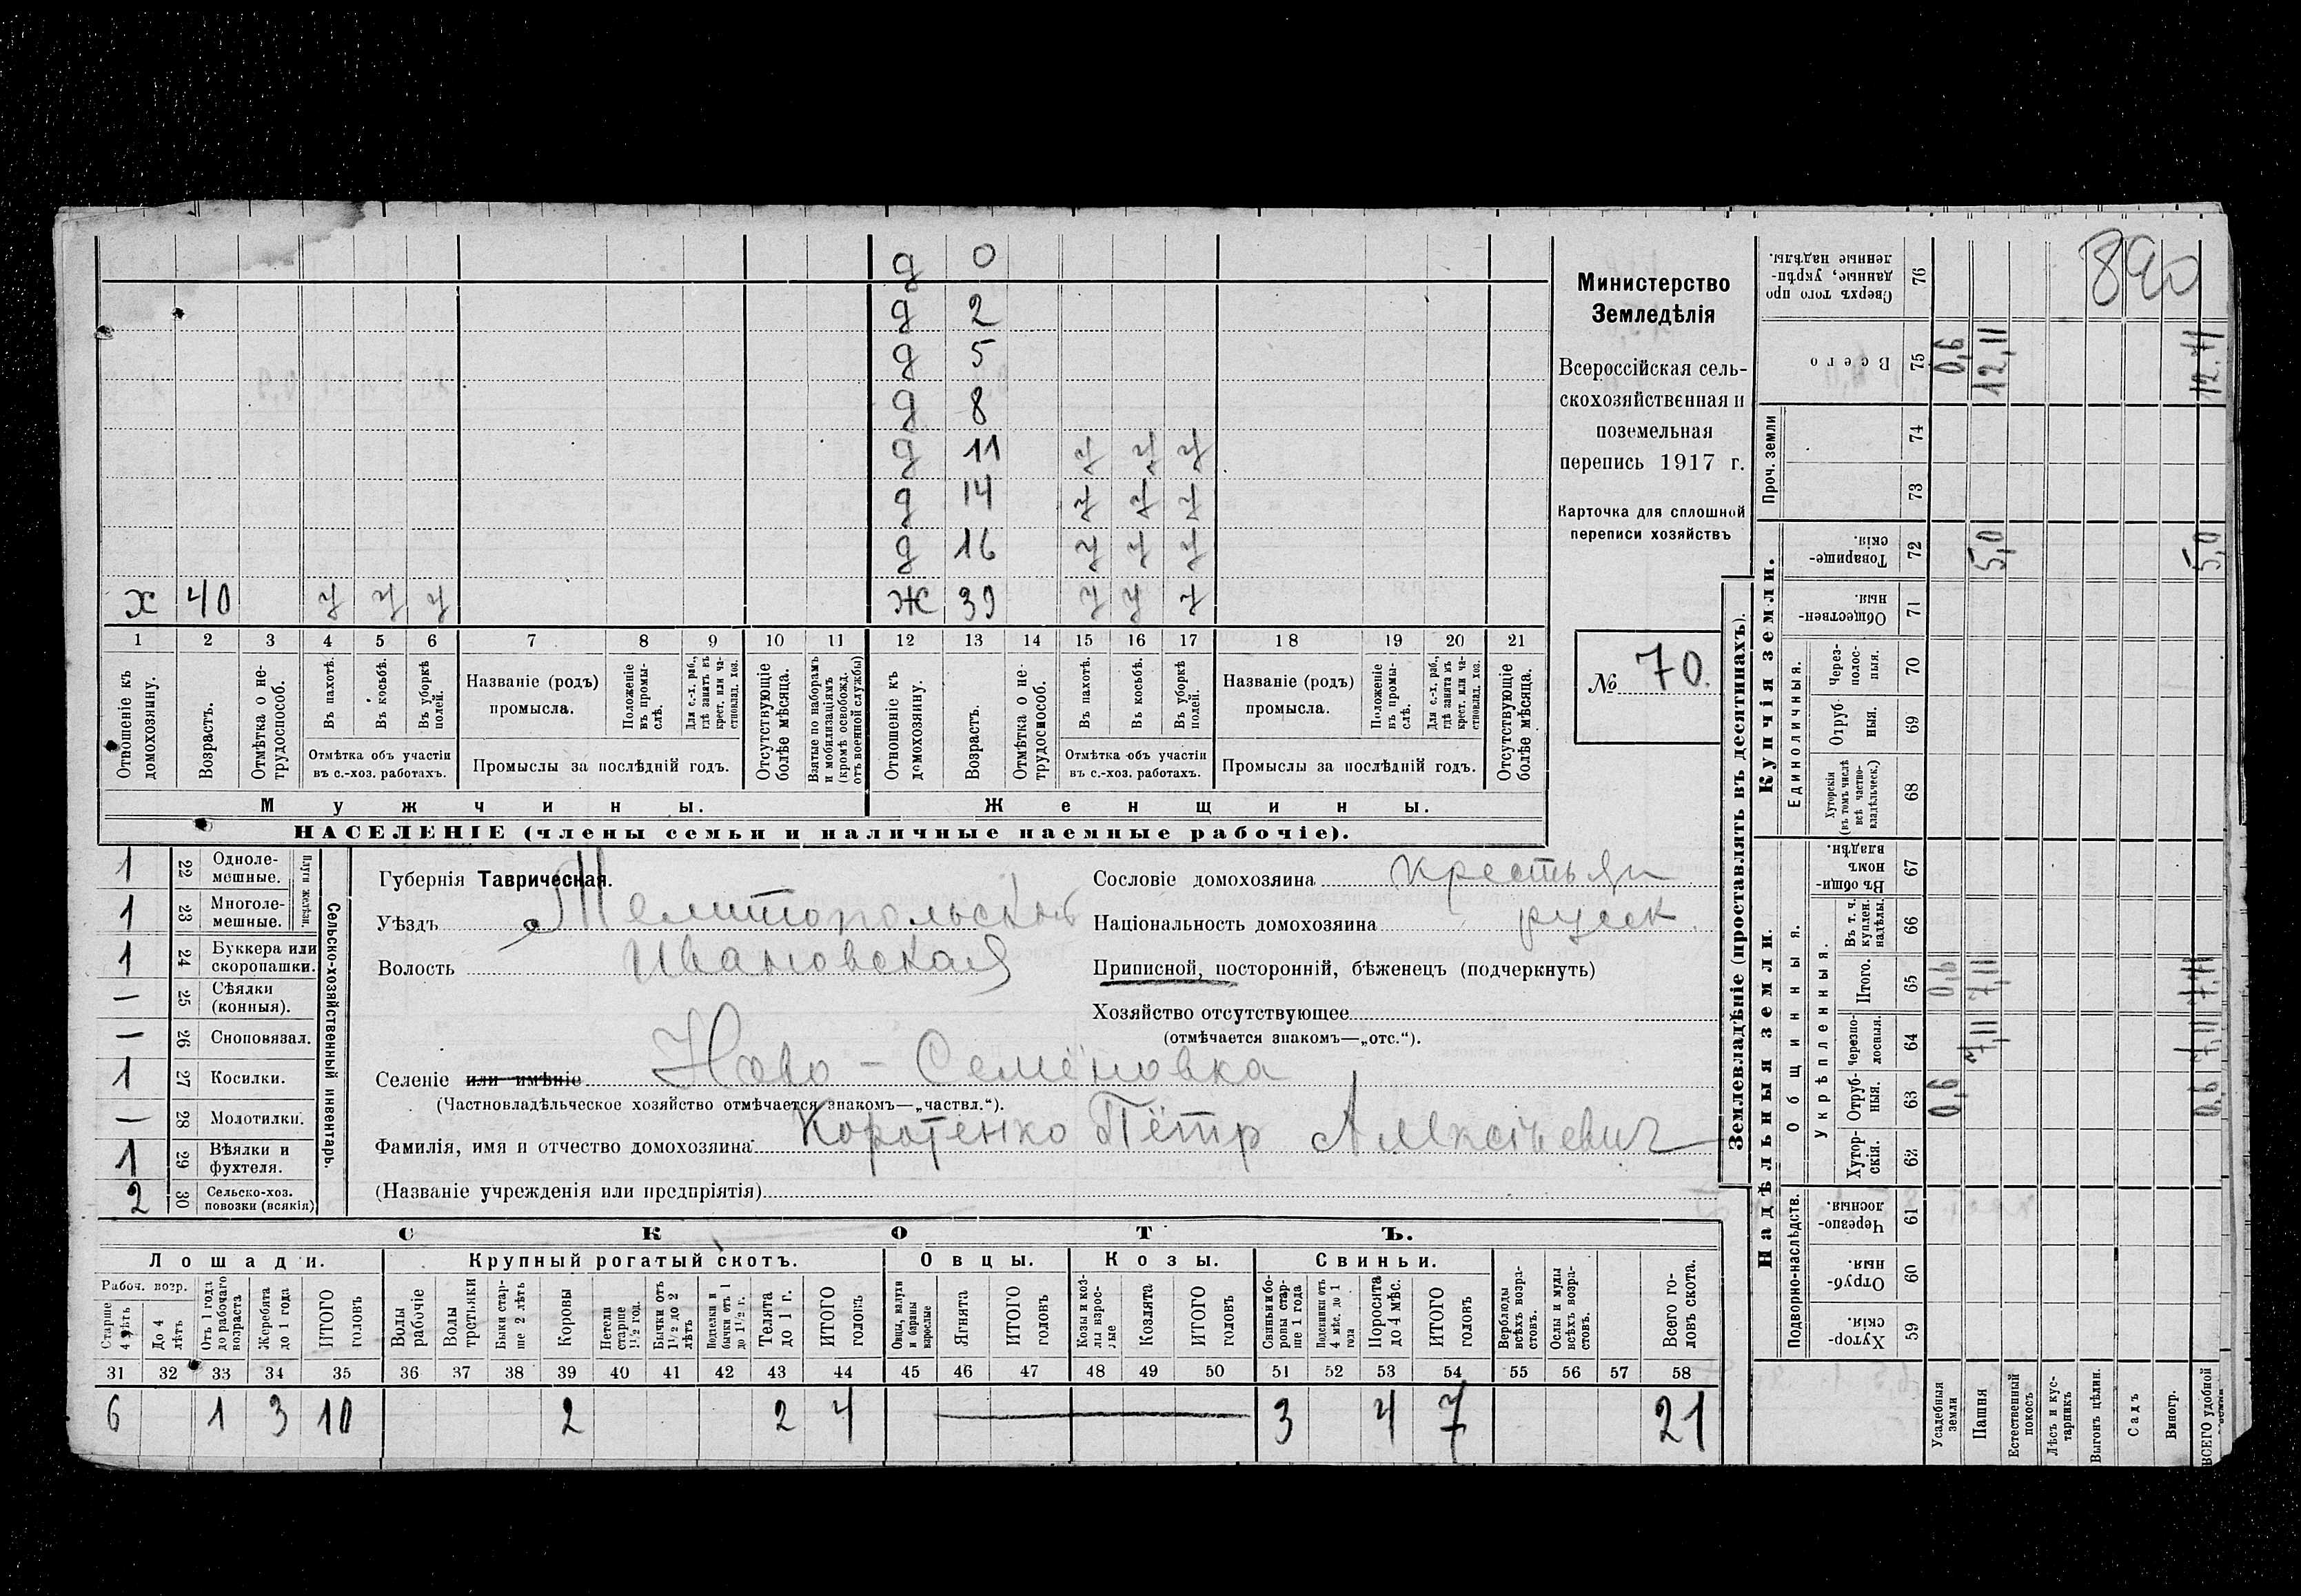 д 0
д 2
д 5
д 8
д 11 у у у
д 14 у у у
д 16 у у у
х 40 у у у ж 39 у у у
1 2 3 4 5 6 7 8 9 10 11 12 13 14 15 16 17 18 19 20 21
Отношеніе къ домохозяину.
Возрастъ.
Отмѣтка о нетрудоспособ.
Въ пахотѣ.
Въ косьбѣ.
Въ уборкѣ полей.
Отмѣтка объ участіи
въ с.-хоз. работахъ.
Названіе (родъ)
промысла.
Положеніе въ промыслѣ.
Для с.-х. раб., гдѣ занятъ въ крест. или частновлад. хоз.
Промыслы за послѣдній годъ.
Отсутствующіе болѣе мѣсяца.
Взятые по наборамъ и мобилизаціямъ (кромѣ освобожд. отъ военной службы)
Отношеніе къ домохозяину.
Возрастъ.
Отмѣтка о нетрудоспособ.
Въ пахотѣ.
Въ косьбѣ.
Въ уборкѣ полей.
Отмѣтка объ участіи
въ с.-хоз. работахъ.
Названіе (родъ)
промысла.
Положеніе въ промыслѣ.
Для с.-х. раб., гдѣ занята въ крест. или частновлад. хоз.
Промыслы за послѣдній годъ.
Отсутствующіе болѣе мѣсяца.
Мужчины. Женщины.
НАСЕЛЕНІЕ (члены семьи и наличные наемные рабочіе).
Министерство
Земледѣлія
Всероссійская сель-
скохозяйственная и
поземельная
перепись 1917 г.
Карточка для сплошной
переписи хозяйствъ
№ 70.
1 22 Одноле-
мешные.
1 23 Многоле-
мешные.
Плуги желѣзн.
1 24 Буккера или
скоропашки.
— 25 Сѣялки
(конныя).
— 26 Сноповязал.
1 27 Косилки.
— 28 Молотилки.
1 29 Вѣялки и
фухтеля.
2 30 Сельско-хоз.
повозки (всякія)
Сельско-хозяйственный инвентарь.
Губернія Таврическая.
Уѣздъ Мелитопольскій
Волость Ивановская
Сословіе домохозяина крестьян
Національность домохозяина русск.
Приписной, посторонній, бѣженецъ (подчеркнуть)
Хозяйство отсутствующее
(отмѣчается знакомъ—„отс.“).
Селеніе или имѣніе Ново - Семёновка
(Частновладѣльческое хозяйство отмѣчается знакомъ—„частвл.“).
Фамилія, имя и отчество домохозяина Коротенко Пётр Алексѣевич
(Названіе учрежденія или предпріятія)
СКОТЪ.
Лошади. Крупный рогатый скотъ. Овцы. Козы. Свиньи.
Рабоч. возр.
Старше 4 лѣтъ
До 4 лѣтъ
Отъ 1 года до рабочаго возраста
Жеребята до 1 года
ИТОГО головъ
Волы рабочіе
Волы третьяки
Быки старше 2 лѣтъ
Коровы
Нетели старше 1½ год.
Бычки отъ 1½ до 2 лѣтъ
Подтелки и бычки отъ 1 до 1½ г.
Телята до 1 г.
ИТОГО головъ
Овцы, валухи и бараны взрослые
Ягнята
ИТОГО головъ
Козы и козлы взрослые
Козлята
ИТОГО головъ
Свиньи и боровы старше 1 года
Подсвинки отъ 4 мѣс. до 1 года
Поросята до 4 мѣс.
ИТОГО головъ
Верблюды всѣхъ возрастовъ.
Ослы и мулы всѣхъ возрастовъ.
Всего головъ скота.
31 32 33 34 35 36 37 38 39 40 41 42 43 44 45 46 47 48 49 50 51 52 53 54 55 56 57 58
6 1 3 10 2 2 4 — 3 4 7 21
Землевладѣніе (проставлять въ десятинахъ).
890
Сверхъ того проданные, укрѣпленные надѣлы. 76
Всего 75 0,6 12,11 12.71
Проч. земли 74
73
Купчія земли.
Товарищескія. 72 5,0 5,0
Общественныя. 71
Единоличныя.
Черезполосныя. 70
Отрубныя. 69
Хуторскія (въ томъ числѣ всѣ частновладѣльческ.) 68
Надѣльныя земли.
Общинныя.
Въ общинномъ владѣн. 67
Укрѣпленныя.
Въ т. ч. куплен. надѣлы. 66
Итого. 65 0,6 7,11 7,71
Черезполосныя. 64 7,11 7,11
Отрубныя. 63 0,6 0,6
Хуторскія. 62
Подворно-наслѣдств.
Черезполосныя. 61
Отрубныя. 60
Хуторскія. 59
Усадебныя земли
Пашня
Естественный покосъ
Лѣсъ и кустарникъ
Выгонъ цѣлин.
Садъ
Виногр.
ВСЕГО удобной